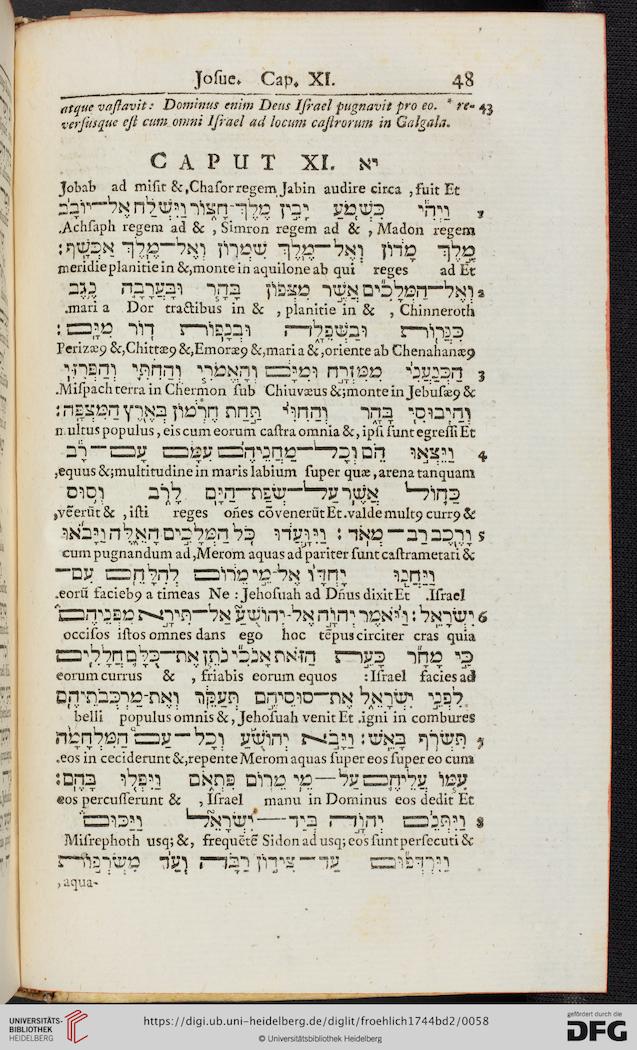 Josue. Cap. XI. 48
atque vastavit: Dominus enim Deus Israel pugnavit pro eo. * re- 43
versusque est cum omni Israel ad locum castrorum in Galgala.
CAPUT XI. יא
Jobab ad misit &, Chasor regem Jabin audire circa , fuit Et
וַיְהִי כִּשְׁמֹעַ יָבִין מֶלֶךְ־חָצוֹר וַיִּשְׁלַח אֶל־יוֹבָב 1
.Achsaph regem ad & , Simron regem ad & , Madon regem
מֶלֶךְ מָדוֹן וְאֶל־מֶלֶךְ שִׁמְרוֹן וְאֶל־מֶלֶךְ אַכְשָׁף׃
meridie planitie in &, monte in aquilone ab qui reges ad Et
וְאֶל־הַמְּלָכִים אֲשֶׁר מִצְּפוֹן בָּהָר וּבָעֲרָבָה נֶגֶב 2
.mari a Dor tractibus in & , planitie in & , Chinneroth
כִּנֲרוֹת וּבַשְּׁפֵלָה וּבְנָפוֹת דּוֹר מִיָּם׃
Perizæ9 &, Chittæ9 &, Emoræ9 &, mari a &, oriente ab Chenahanæ9
הַכְּנַעֲנִי מִמִּזְרָח וּמִיָּם וְהָאֱמֹרִי וְהַחִתִּי וְהַפְּרִזִּי 3
.Mispach terra in Chermon sub Chiuvæus &; monte in Jebusæ9 &
וְהַיְבוּסִי בָּהָר וְהַחִוִּי תַּחַת חֶרְמוֹן בְּאֶרֶץ הַמִּצְפָּה׃
multus populus, eis cum eorum castra omnia &, ipsi sunt egressi Et
וַיֵּצְאוּ הֵם וְכָל־מַחֲנֵיהֶם עִמָּם עַם־רָב 4
,equus &; multitudine in maris labium super quæ, arena tanquam
כַּחוֹל אֲשֶׁר עַל־שְׂפַת־הַיָּם לָרֹב וְסוּס
,vēerūt & , isti reges oñes cōvenerūt Et. valde mult9 curr9 &
וָרֶכֶב רַב־מְאֹד׃ וַיִּוָּעֲדוּ כֹּל הַמְּלָכִים הָאֵלֶּה וַיָּבֹאוּ 5
cum pugnandum ad, Merom aquas ad pariter sunt castrametati &
וַיַּחֲנוּ יַחְדָּו אֶל־מֵי מֵרוֹם לְהִלָּחֵם עִם־
.eorū facieb9 a timeas Ne : Jehosuah ad Dñus dixit Et .Israel
יִשְׂרָאֵל׃ וַיֹּאמֶר יְהוָה אֶל־יְהוֹשֻׁעַ אַל־תִּירָא מִפְּנֵיהֶם 6
occisos istos omnes dans ego hoc tēpus circiter cras quia
כִּי מָחָר כָּעֵת הַזֹּאת אָנֹכִי נֹתֵן אֶת־כֻּלָּם חֲלָלִים
eorum currus & , friabis eorum equos :Israel facies ad
לִפְנֵי יִשְׂרָאֵל אֶת־סוּסֵיהֶם תְּעַקֵּר וְאֶת־מַרְכְּבֹתֵיהֶם
belli populus omnis &, Jehosuah venit Et .igni in combures
תִּשְׂרֹף בָּאֵשׁ׃ וַיָּבֹא יְהוֹשֻׁעַ וְכָל־עַם הַמִּלְחָמָה 7
.eos in ceciderunt &, repente Merom aquas super eos super eo cum
עִמּוֹ עֲלֵיהֶם עַל־מֵי מֵרוֹם פִּתְאֹם וַיִּפְּלוּ בָּהֶם׃
eos percusserunt & , Israel manu in Dominus eos dedit Et
וַיִּתְּנֵם יְהוָה בְּיַד־יִשְׂרָאֵל וַיַּכּוּם 8
Misrephoth usq; &, frequētē Sidon ad usq; eos sunt persecuti &
וַיִּרְדְּפוּם עַד־צִידוֹן רַבָּה וְעַד מִשְׂרְפוֹת
, aqua-
UNIVERSITÄTS-
BIBLIOTHEK
HEIDELBERG
https://digi.ub.uni-heidelberg.de/diglit/froehlich1744bd2/0058
© Universitätsbibliothek Heidelberg
gefördert durch die
DFG